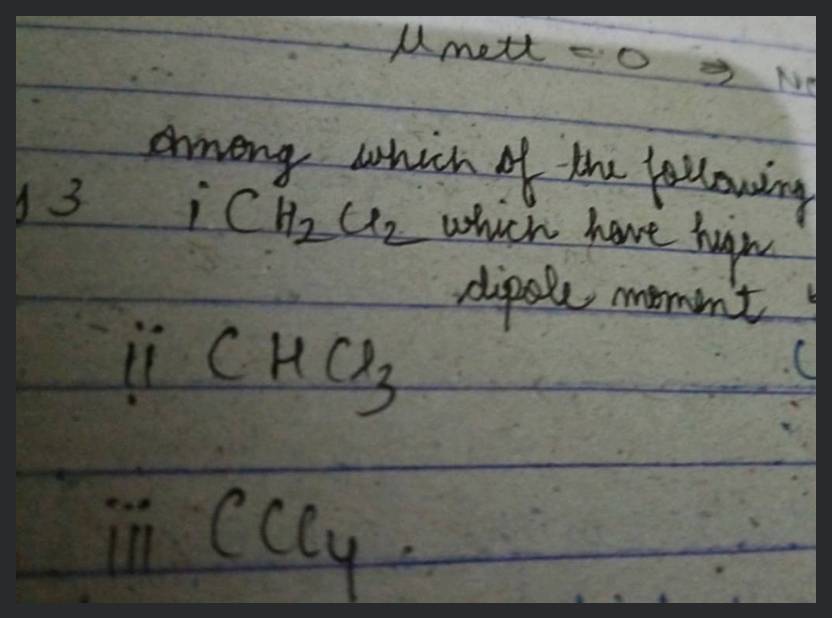 μ nett = 0 ⇒
Among which of the following
3 i CH₂Cl₂ which have high
dipole moment
ii CHCl₃
iii CCl₄.